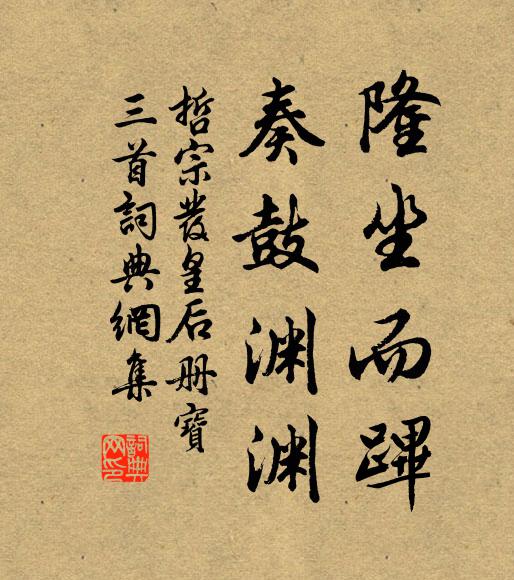 隆坐而蹕
奏鼓渊渊
哲宗發皇后册寶
三首詞典網集
詞典网印